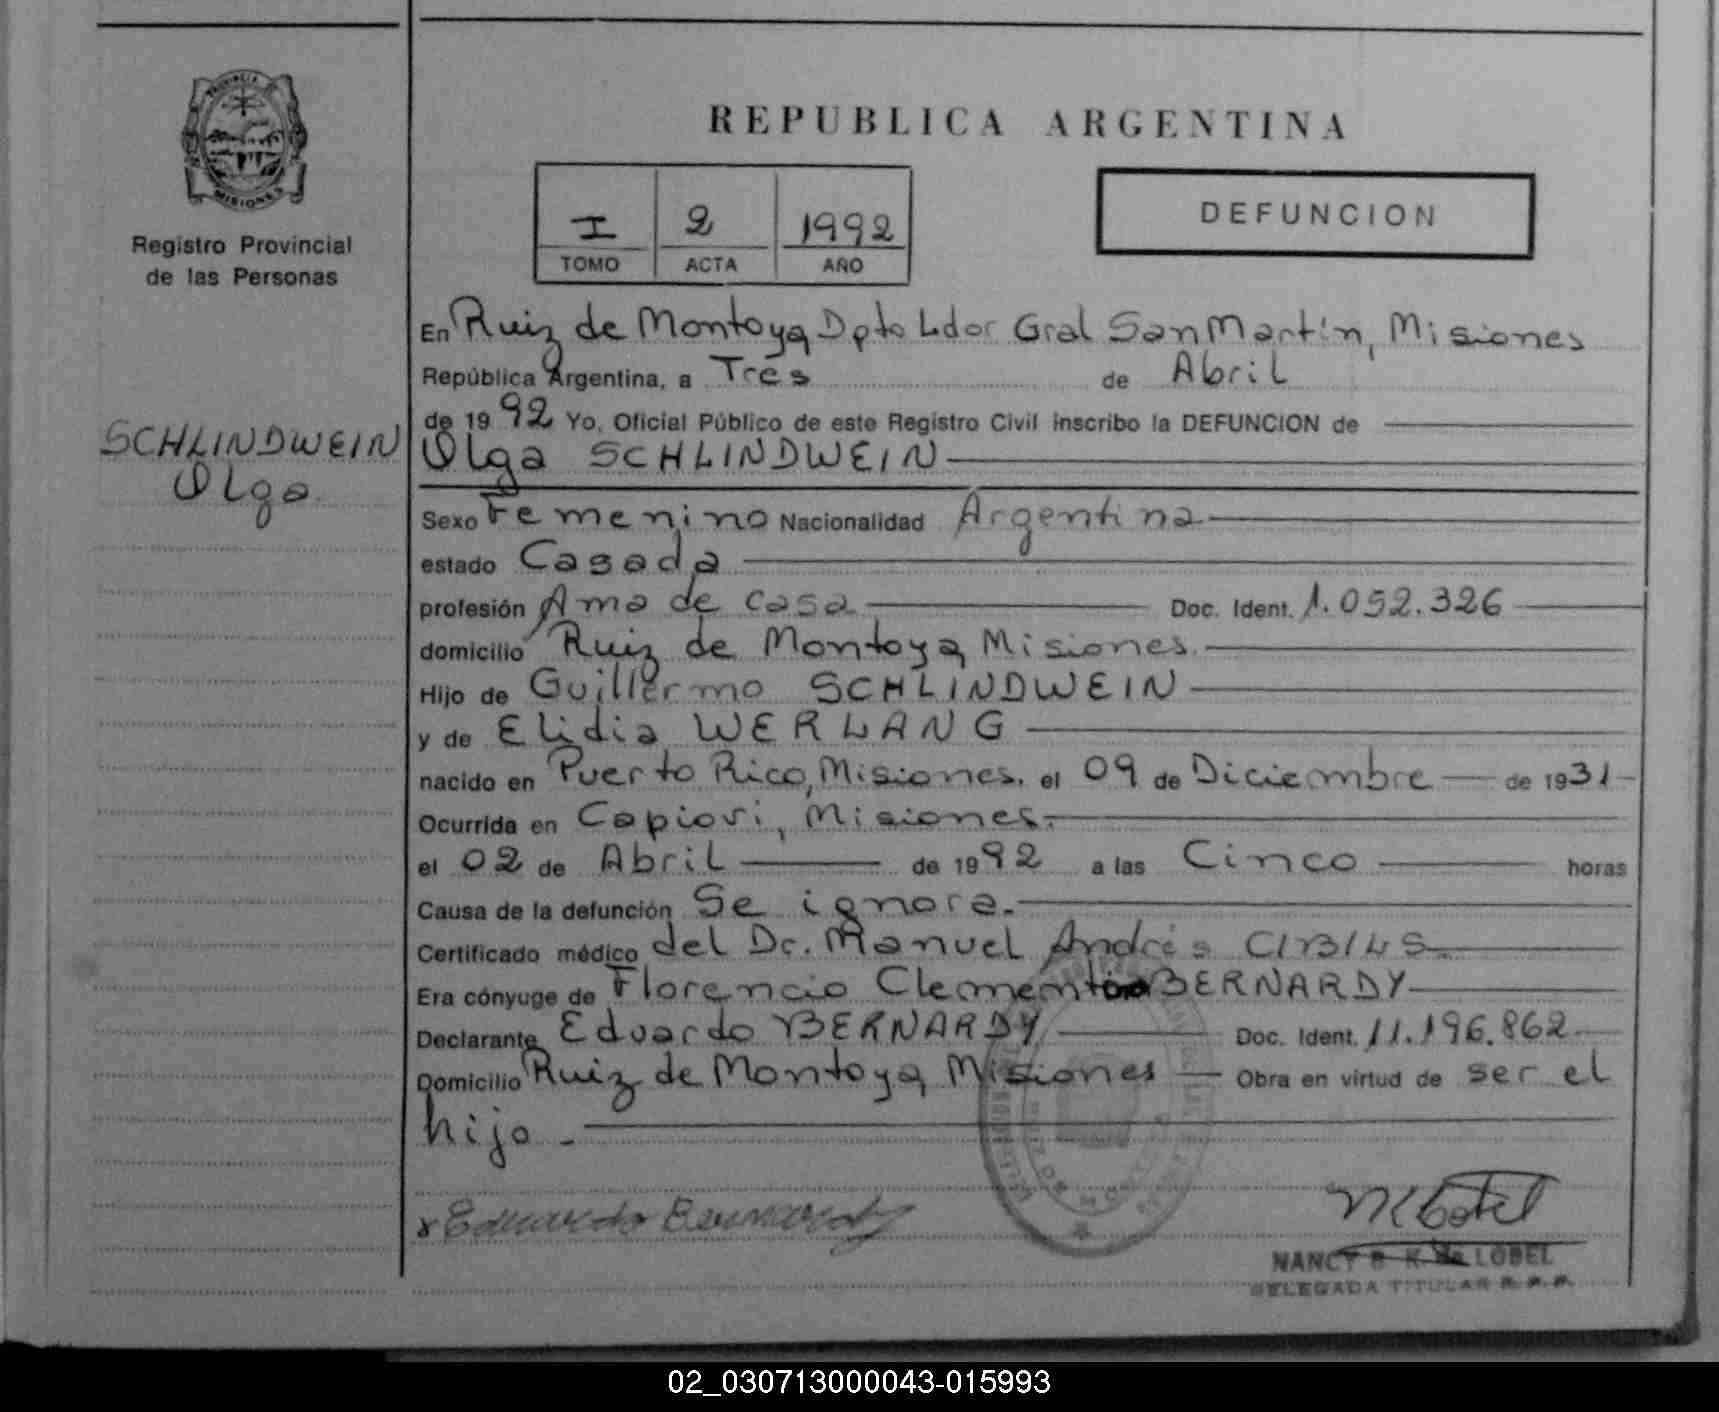 PROVINCIA
MISIONES
Registro Provincial
de las Personas
SCHLINDWEIN
Olga
REPUBLICA ARGENTINA
I 2 1992
TOMO ACTA AÑO
DEFUNCION
En Ruiz de Montoya, Dpto Ldor Gral San Martín, Misiones
República Argentina, a Tres de Abril
de 1992 Yo, Oficial Público de este Registro Civil inscribo la DEFUNCION de
Olga SCHLINDWEIN
Sexo Femenino Nacionalidad Argentina
estado Casada
profesión Ama de casa Doc. Ident. 1.052.326
domicilio Ruiz de Montoya, Misiones.
Hijo de Guillermo SCHLINDWEIN
y de Elidia WERLANG
nacido en Puerto Rico, Misiones. el 09 de Diciembre de 1931
Ocurrida en Capiovi, Misiones.
el 02 de Abril de 1992 a las Cinco horas
Causa de la defunción Se ignora.
Certificado médico del Dr. Manuel Andrés CIBILS
Era cónyuge de Florencio Clemente BERNARDY
Declarante Eduardo BERNARDY Doc. Ident. 11.196.862
Domicilio Ruiz de Montoya, Misiones Obra en virtud de ser el
hijo.
x Eduardo Bernardy
NANCY B. K. de LOBEL
DELEGADA TITULAR R. P. P.
02_030713000043-015993